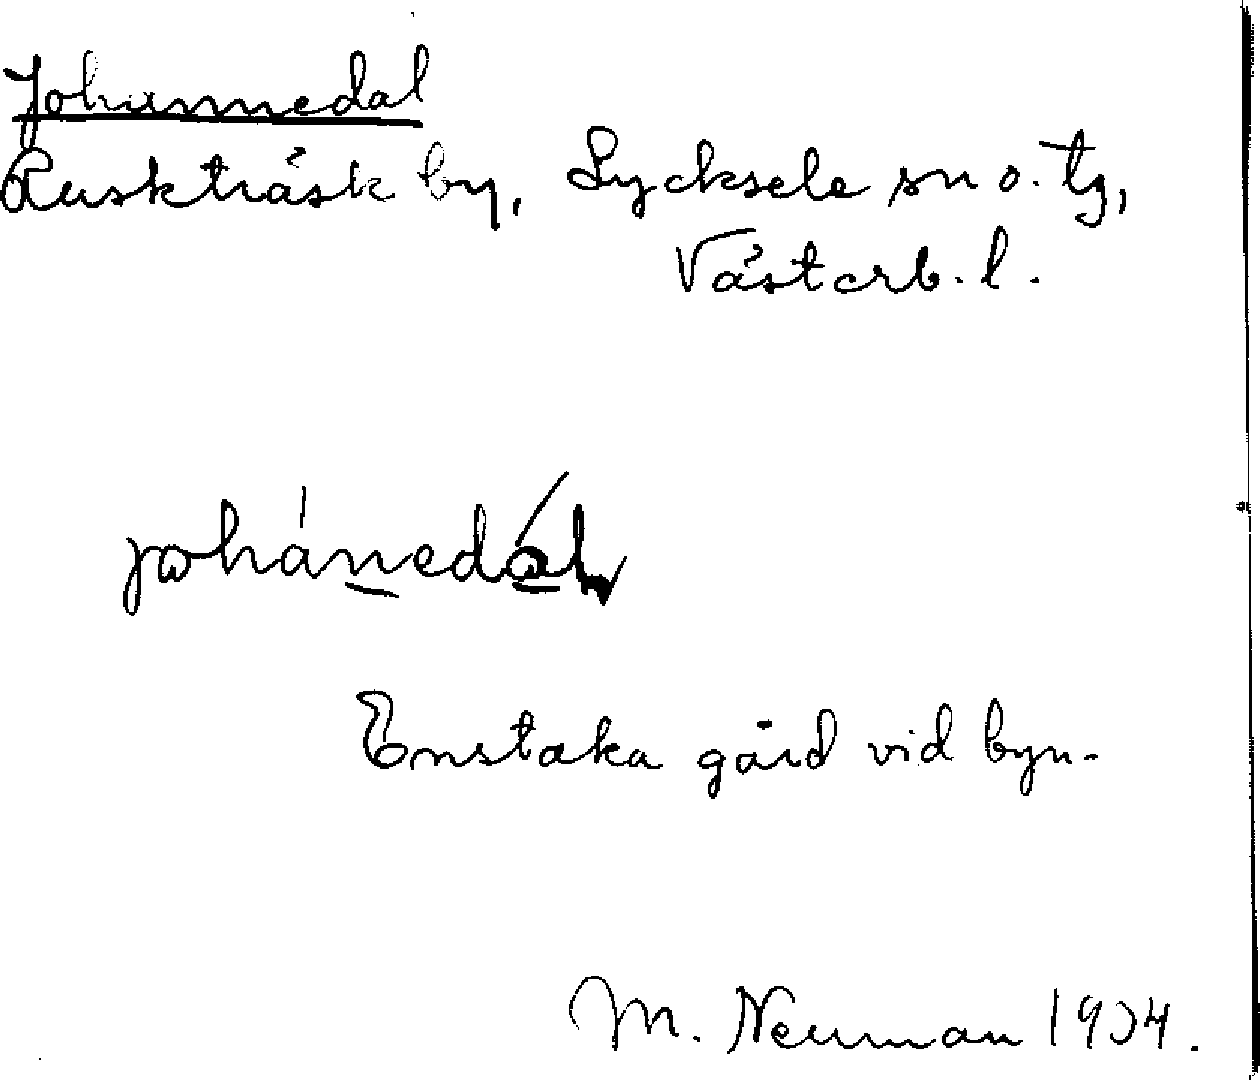 Johannedal
Ruskträsk by, Lycksele sn o. tg,
Västerb. l.
johanedal
Enstaka gård vid byn.
M. Neuman 1934.